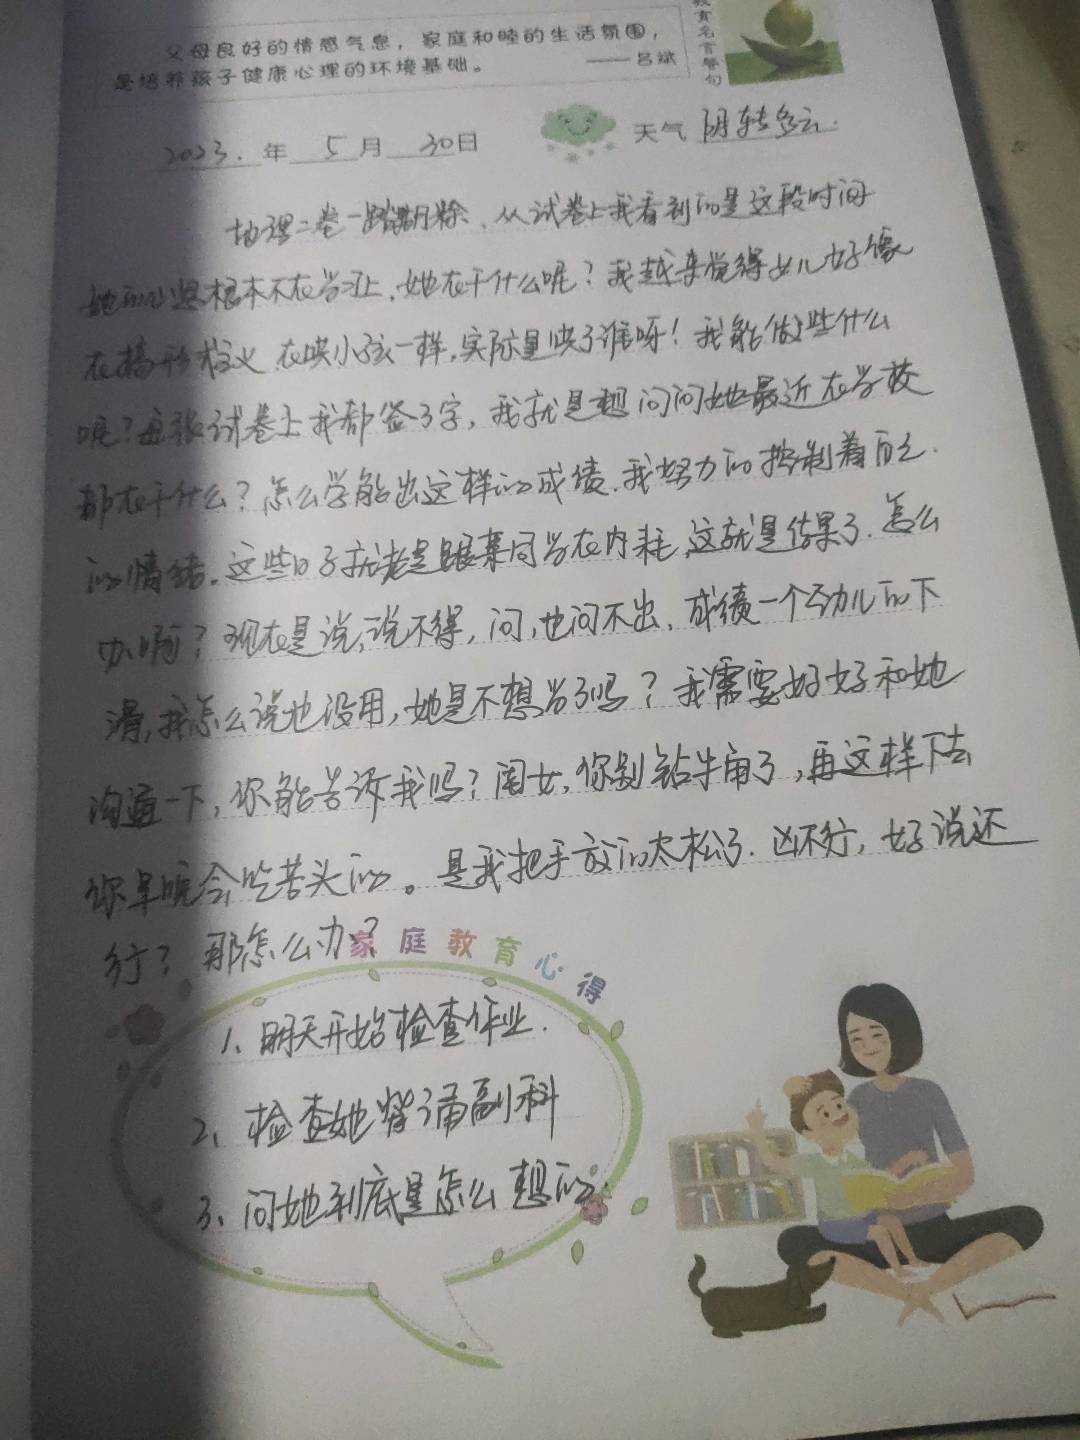 教育名言警句
父母良好的情感气息，家庭和睦的生活氛围，
是培养孩子健康心理的环境基础。 ——吕斌
2023.年 5月 30日 天气 阴转多云.
地理二卷一踏糊涂、从试卷上我看到的是这段时间
她的心思根本不在学习上、她在干什么呢？我越来觉得女儿好像
在搞形式主义 在哄小孩一样,实际是哄了谁呀！我能做些什么
呢？每张试卷上我都签了字，我就是想问问她最近在学校
都在干什么？怎么学能出这样的成绩.我努力的控制着自己.
的情绪。这些日子就老是跟某同学在内耗,这就是结果了.怎么
办啊？现在是说,说不得，问,也问不出、成绩一个劲儿的下
滑,我怎么说也没用,她是不想学了吗？我需要好好和她
沟通一下，你能告诉我吗？闺女,你别钻牛角了，再这样下去
你早晚会吃苦头的。是我把手放的太松了.凶不行，好说还
行？那怎么办？
家庭教育心得
1、明天开始检查作业.
2、检查她背诵副科
3、问她到底是怎么想的.